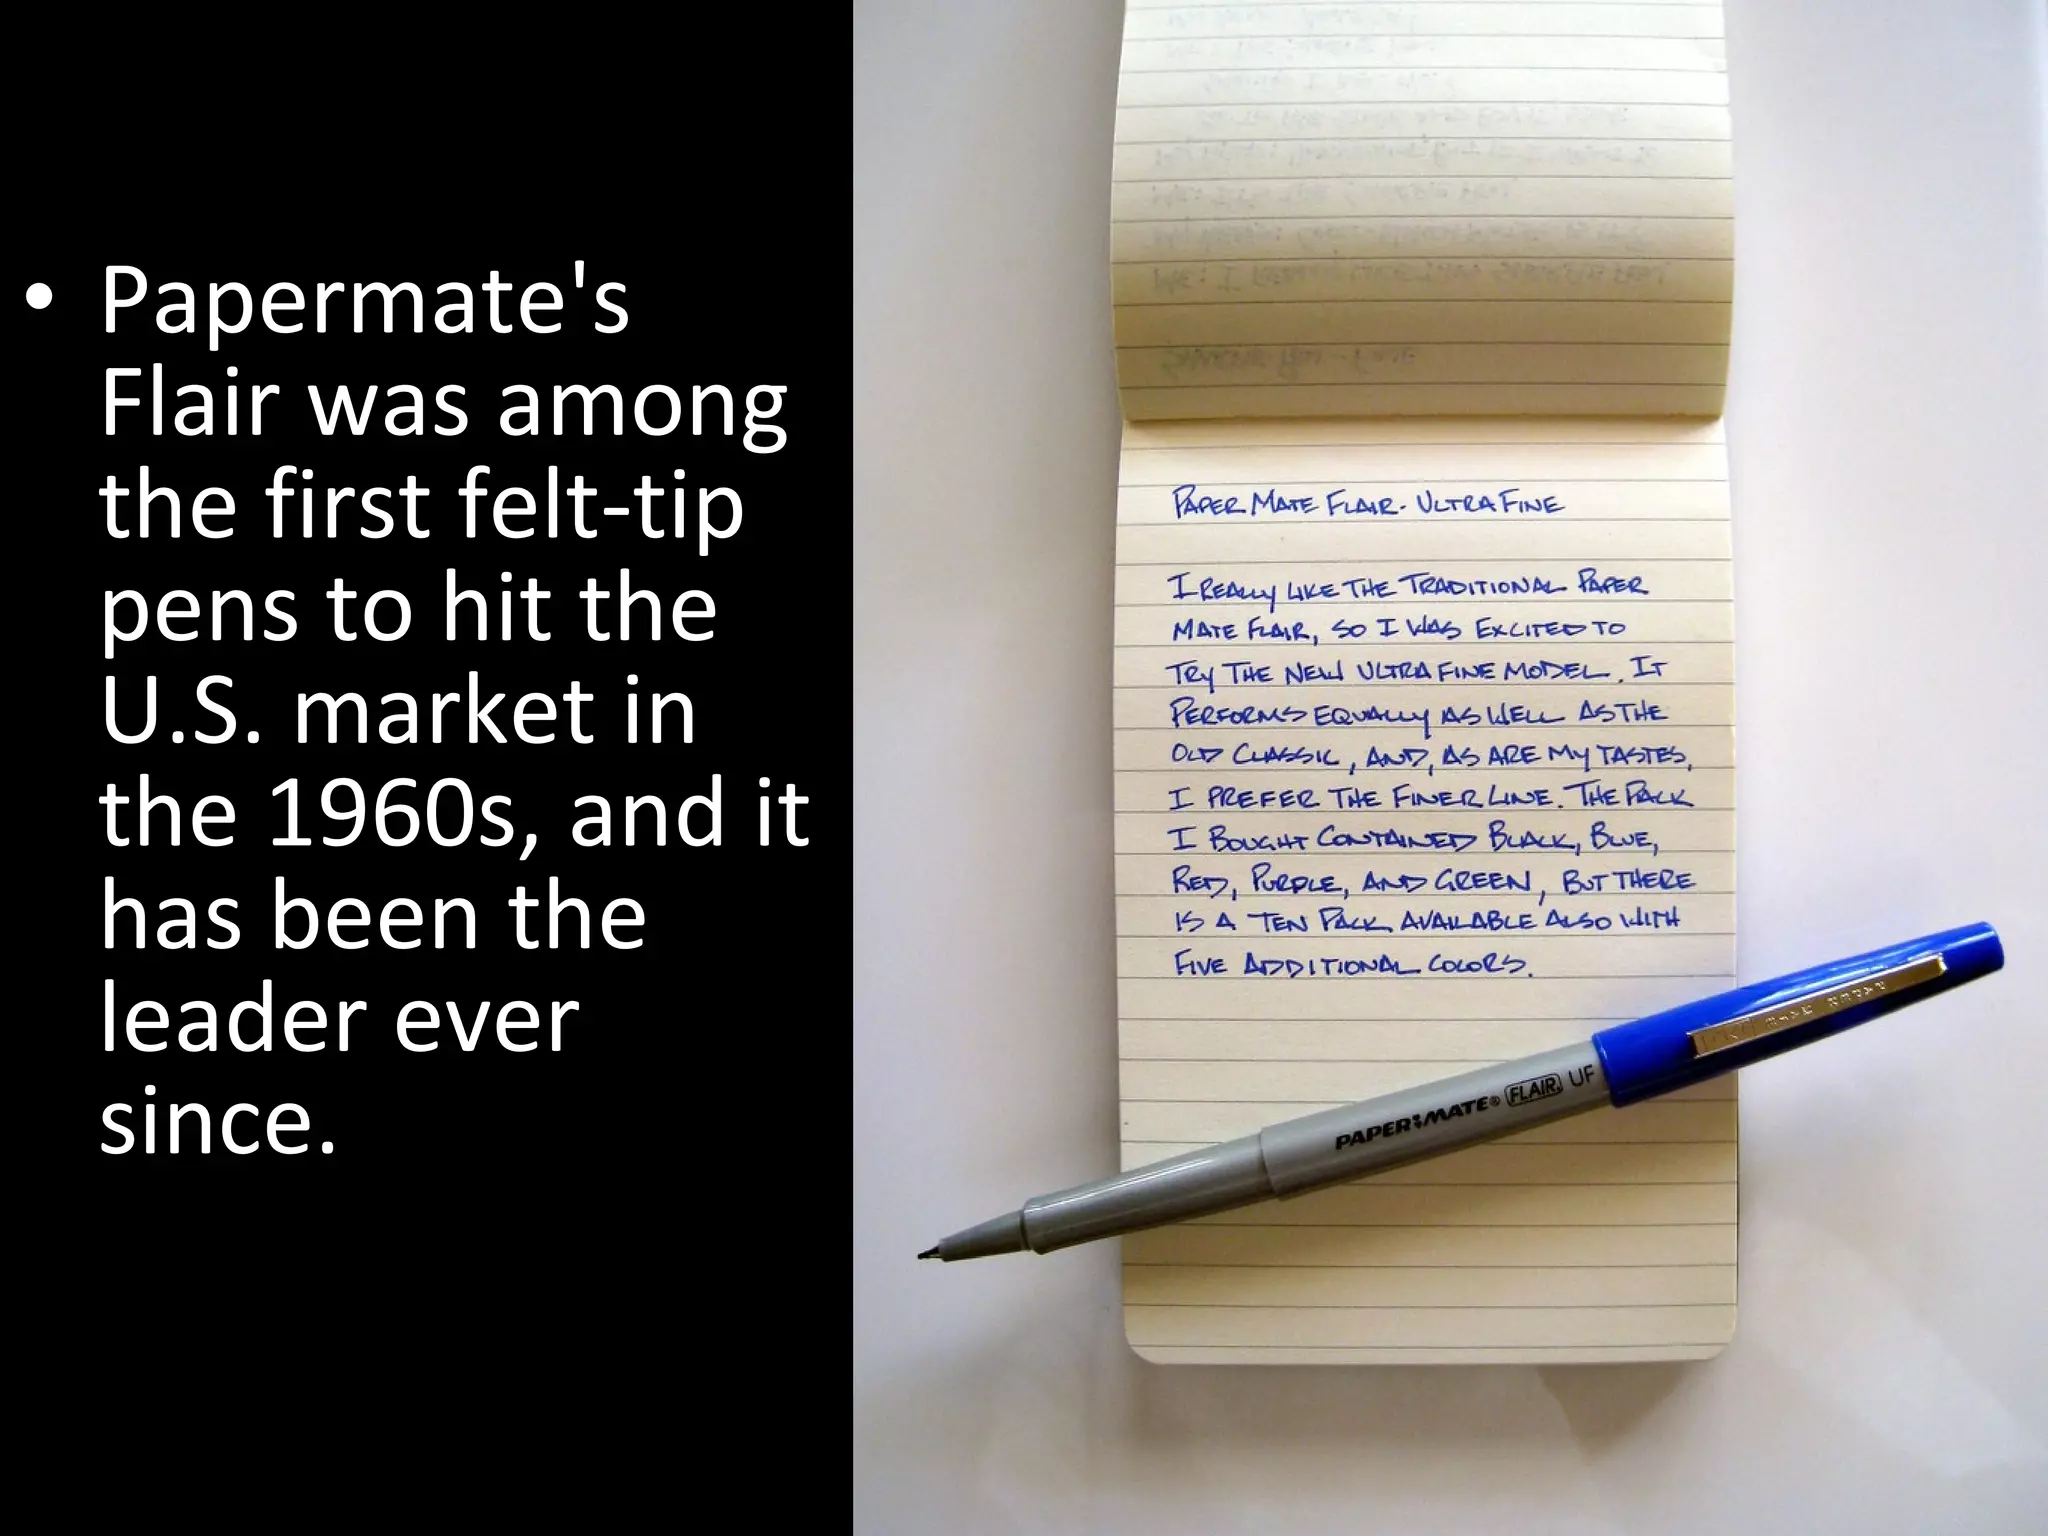 • Papermate's
Flair was among
the first felt-tip
pens to hit the
U.S. market in
the 1960s, and it
has been the
leader ever
since.
PAPER MATE FLAIR - ULTRA FINE
I REALLY LIKE THE TRADITIONAL PAPER
MATE FLAIR, SO I WAS EXCITED TO
TRY THE NEW ULTRA FINE MODEL. IT
PERFORMS EQUALLY AS WELL AS THE
OLD CLASSIC, AND, AS ARE MY TASTES,
I PREFER THE FINER LINE. THE PACK
I BOUGHT CONTAINED BLACK, BLUE,
RED, PURPLE, AND GREEN, BUT THERE
IS A TEN PACK AVAILABLE ALSO WITH
FIVE ADDITIONAL COLORS.
PAPER MATE
PAPER MATE® FLAIR. UF